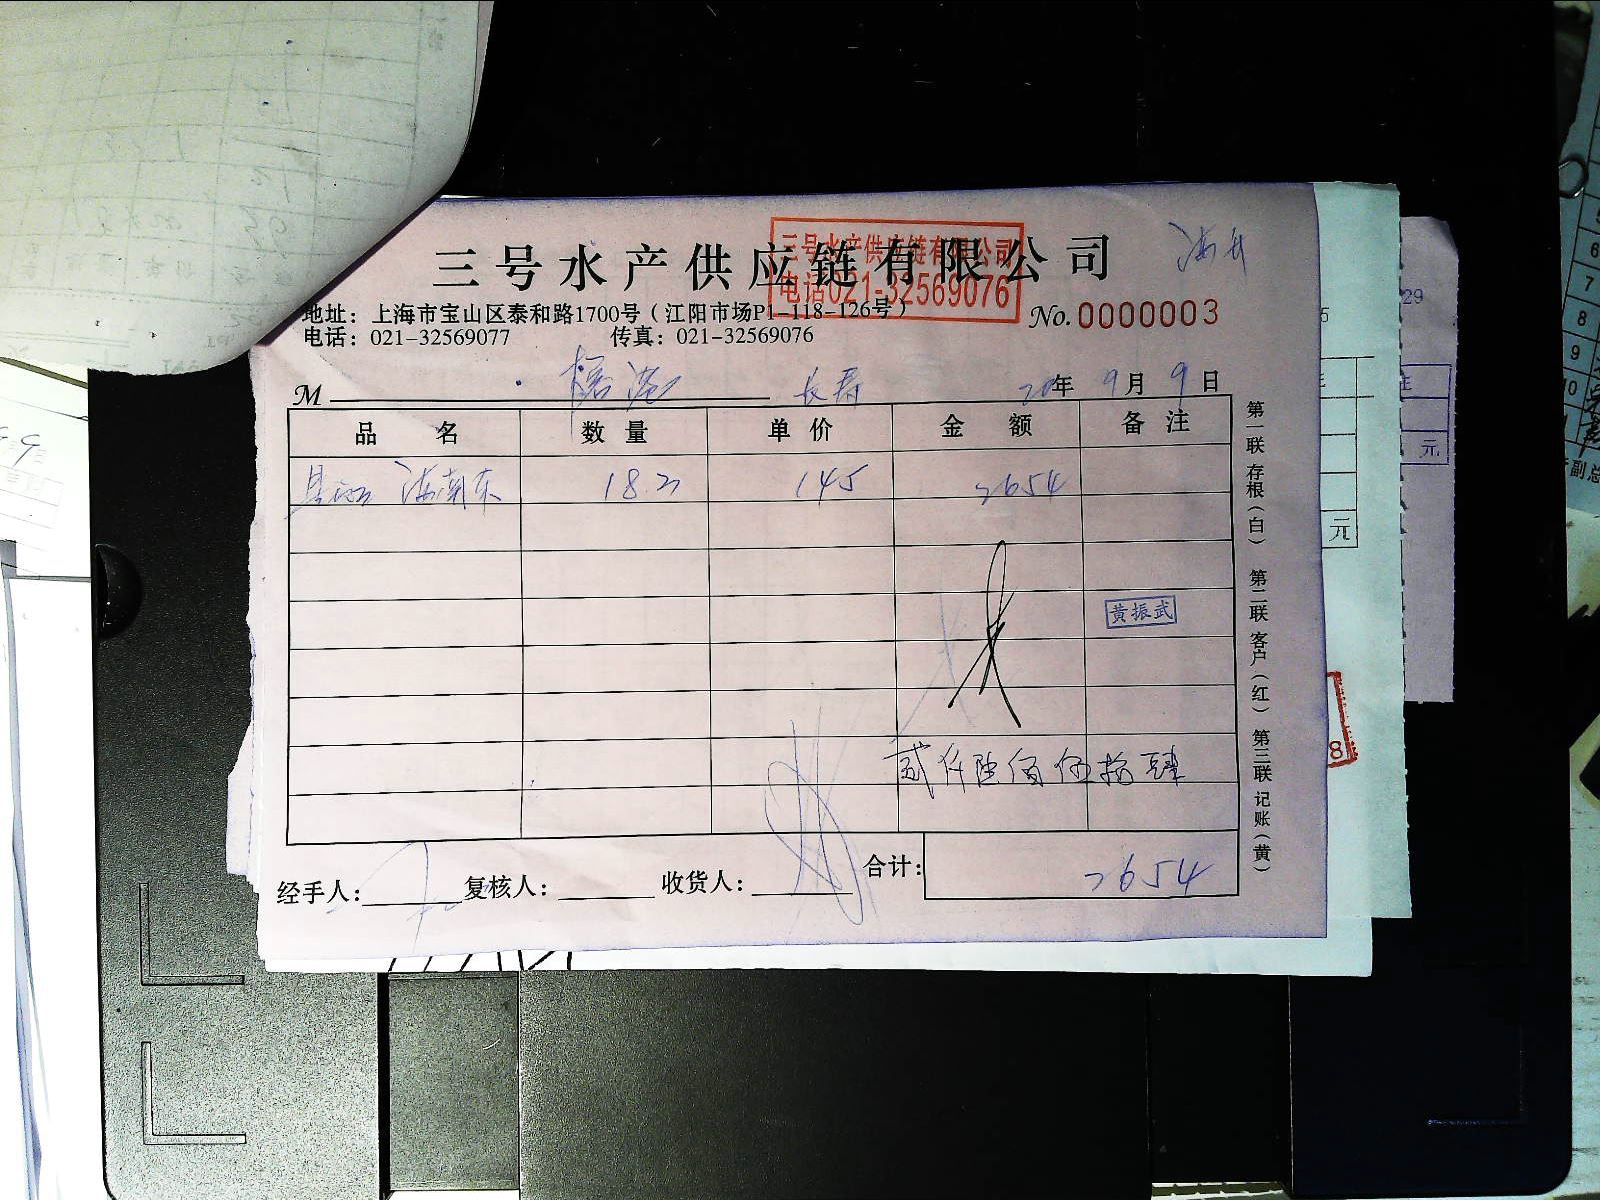 三号水产供应链有限公司
三号水产供应链有限公司
电话021-32569076
地址：上海市宝山区泰和路1700号（江阳市场P1-118-126号）
No. 0000003
电话：021-32569077 传真：021-32569076
M 长寿 20年 9月 9日
品名 数量 单价 金额 备注
海南东 18.3 145 2654
黄振武
贰仟陆佰伍拾肆
合计： 2654
经手人： 复核人： 收货人：
第一联 存根（白） 第二联 客户（红） 第三联 记账（黄）
29
元
元
6
7
8
9
10
副总
8